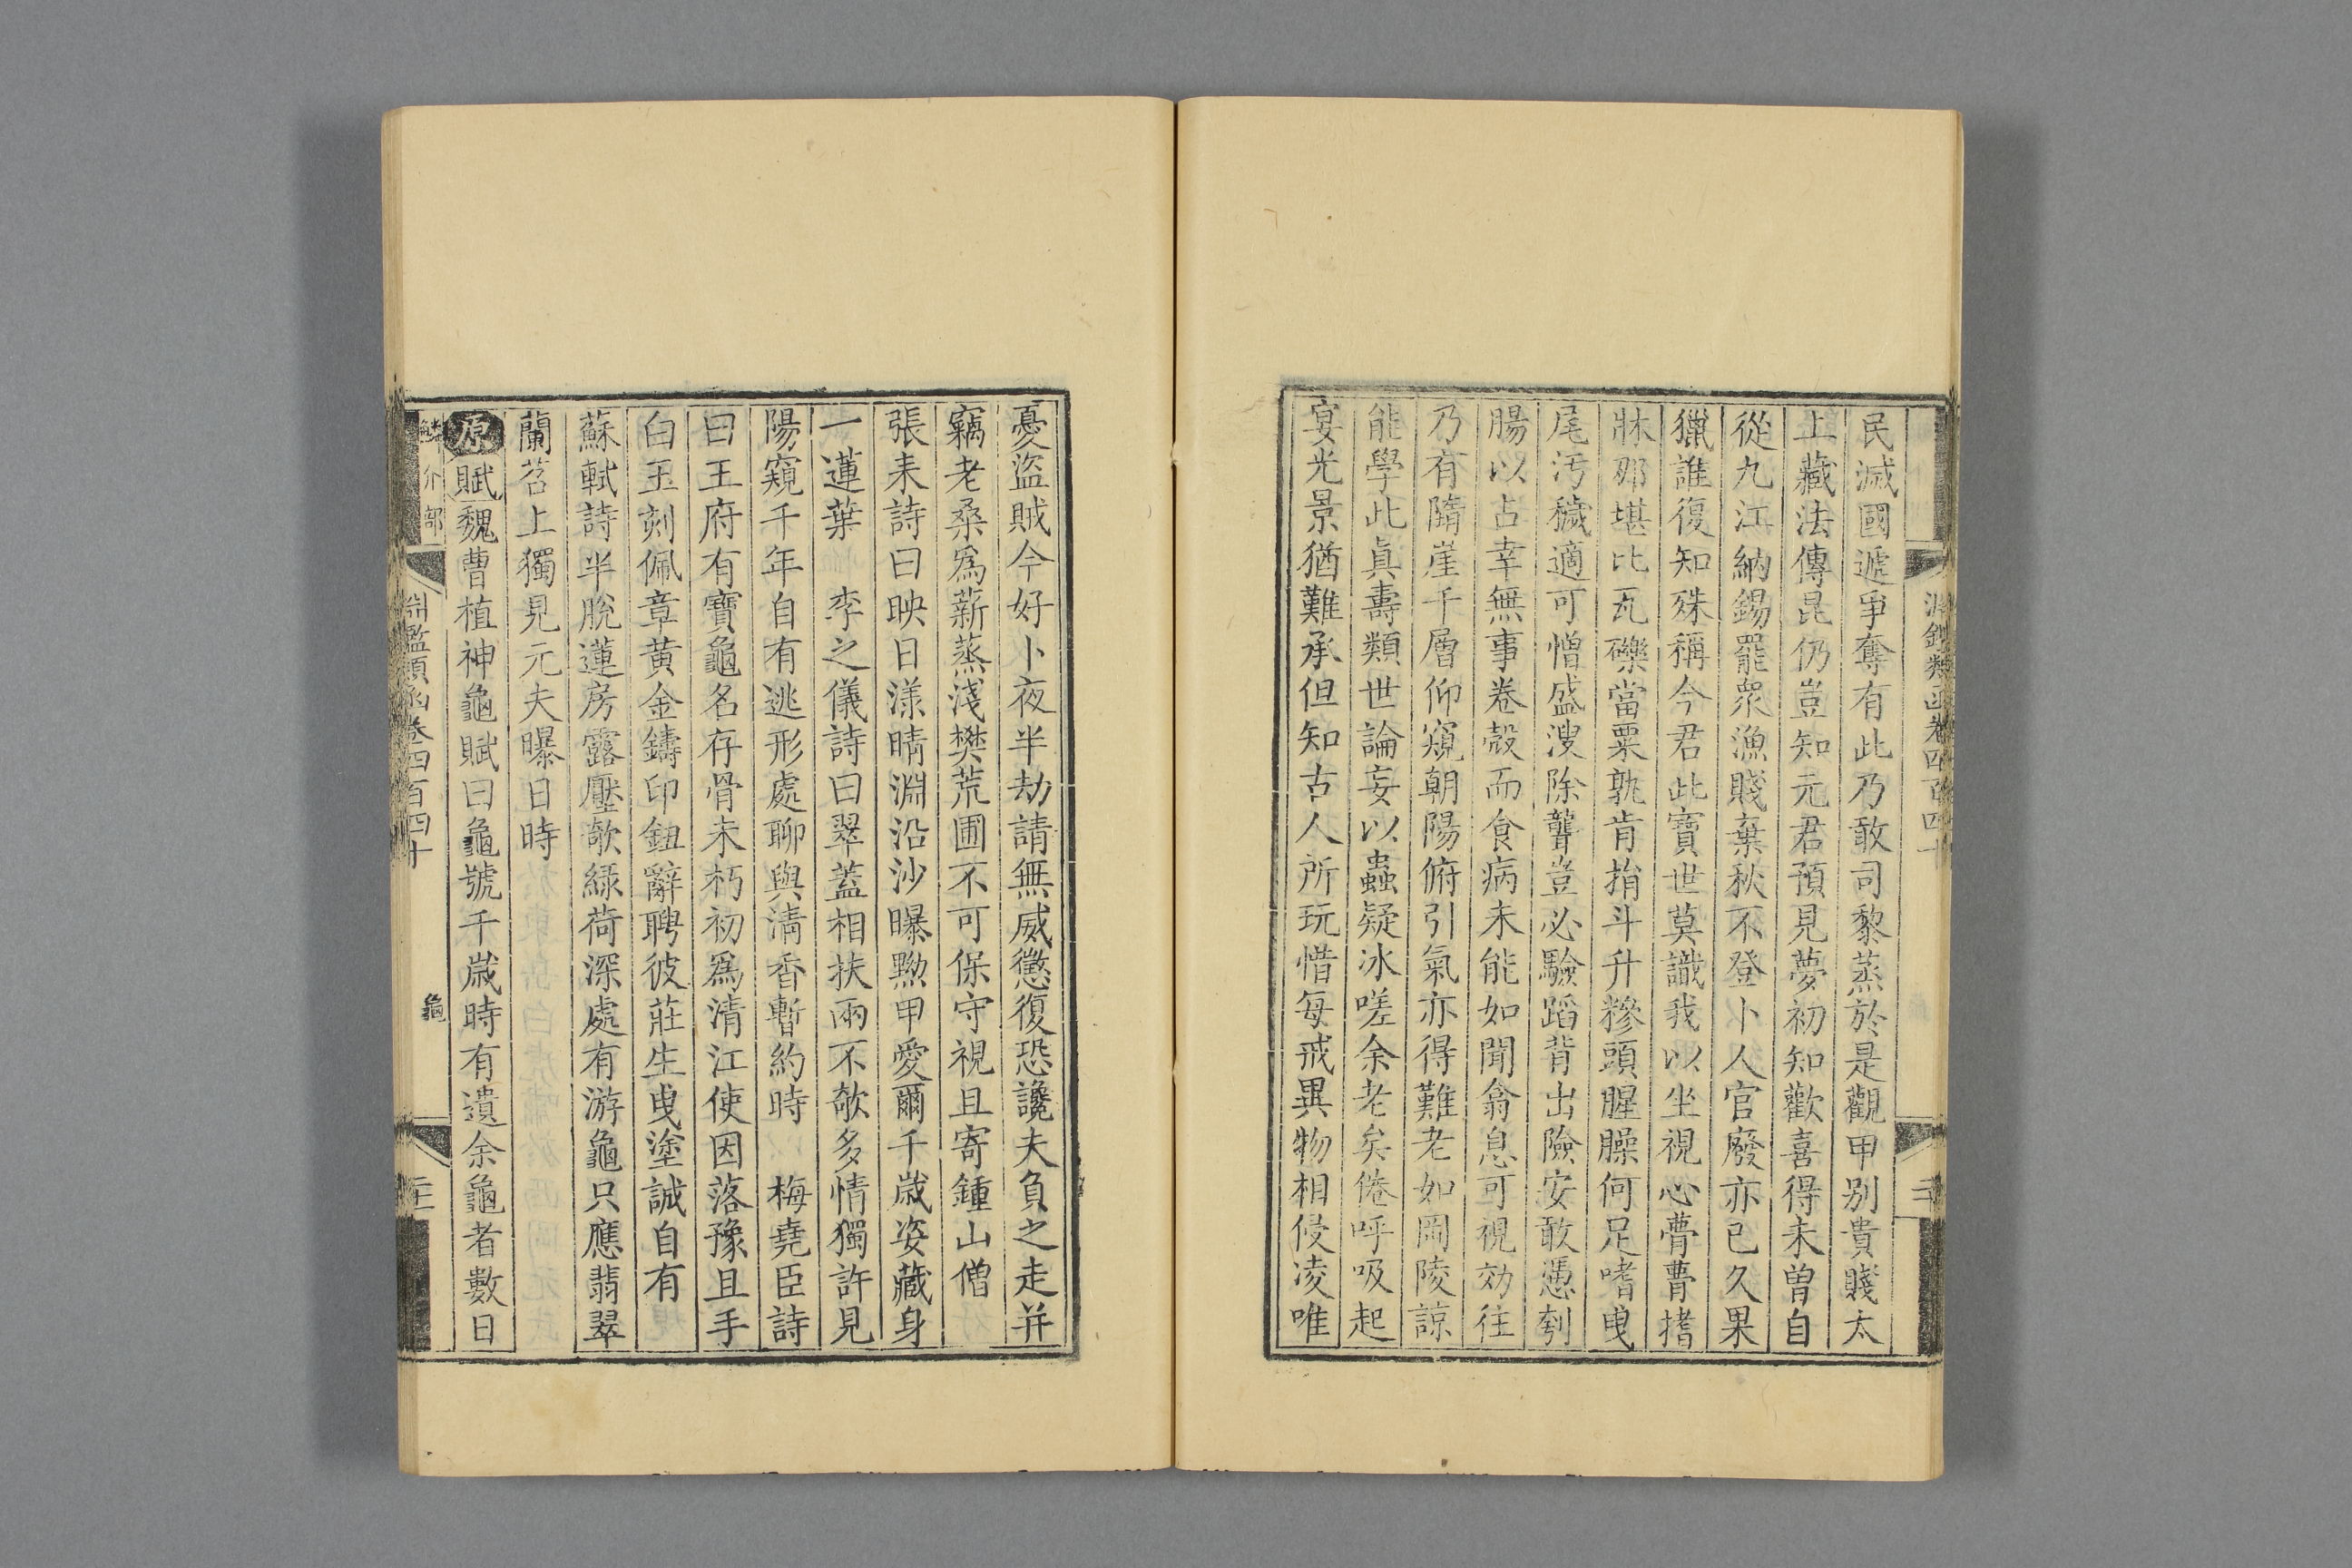 淵鑑類函卷四百四十
民滅國遞爭奪有此乃敢司黎蒸於是觀甲別貴賤太
上藏法傳昆仍豈知元君預見夢初知歡喜得未曾自
從九江納錫罷眾漁賤棄秋不登卜人官廢亦已久果
獵誰復知殊稱今君此寶世莫識我以坐視心瞢瞢搘
牀那堪比瓦礫當粟孰肯捐斗升糝頭腥臊何足嗜曳
尾汚穢適可憎盛溲除聾豈必驗蹈背出險安敢憑刳
腸以占幸無事卷殼而食病未能如聞翕息可視効往
乃有隋崖千層仰窺朝陽俯引氣亦得難老如岡陵諒
能學此眞壽類世論妄以蟲疑冰嗟余老矣倦呼吸起
宴光景猶難承但知古人所玩惜每戒異物相侵凌唯
憂盜賊今好卜夜半劫請無威懲復恐讒夫負之走并
竊老桑爲薪蒸淺樊荒圃不可保守視且寄鍾山僧
張耒詩曰映日漾晴淵沿沙曝黝甲愛爾千歲姿藏身
一蓮葉 李之儀詩曰翠蓋相扶兩不欹多情獨許見
陽窺千年自有逃形處聊與淸香暫約時 梅堯臣詩
曰王府有寶龜名存骨未朽初爲清江使因落豫且手
白玉刻佩章黃金鑄印鈕辭聘彼莊生曳塗誠自有
蘇軾詩半脫蓮房露壓欹綠荷深處有游龜只應翡翠
蘭苕上獨見元夫曝日時
原賦魏曹植神龜賦曰龜號千歲時有遺余龜者數日
鱗介部 淵鑑類函卷四百四十 龜